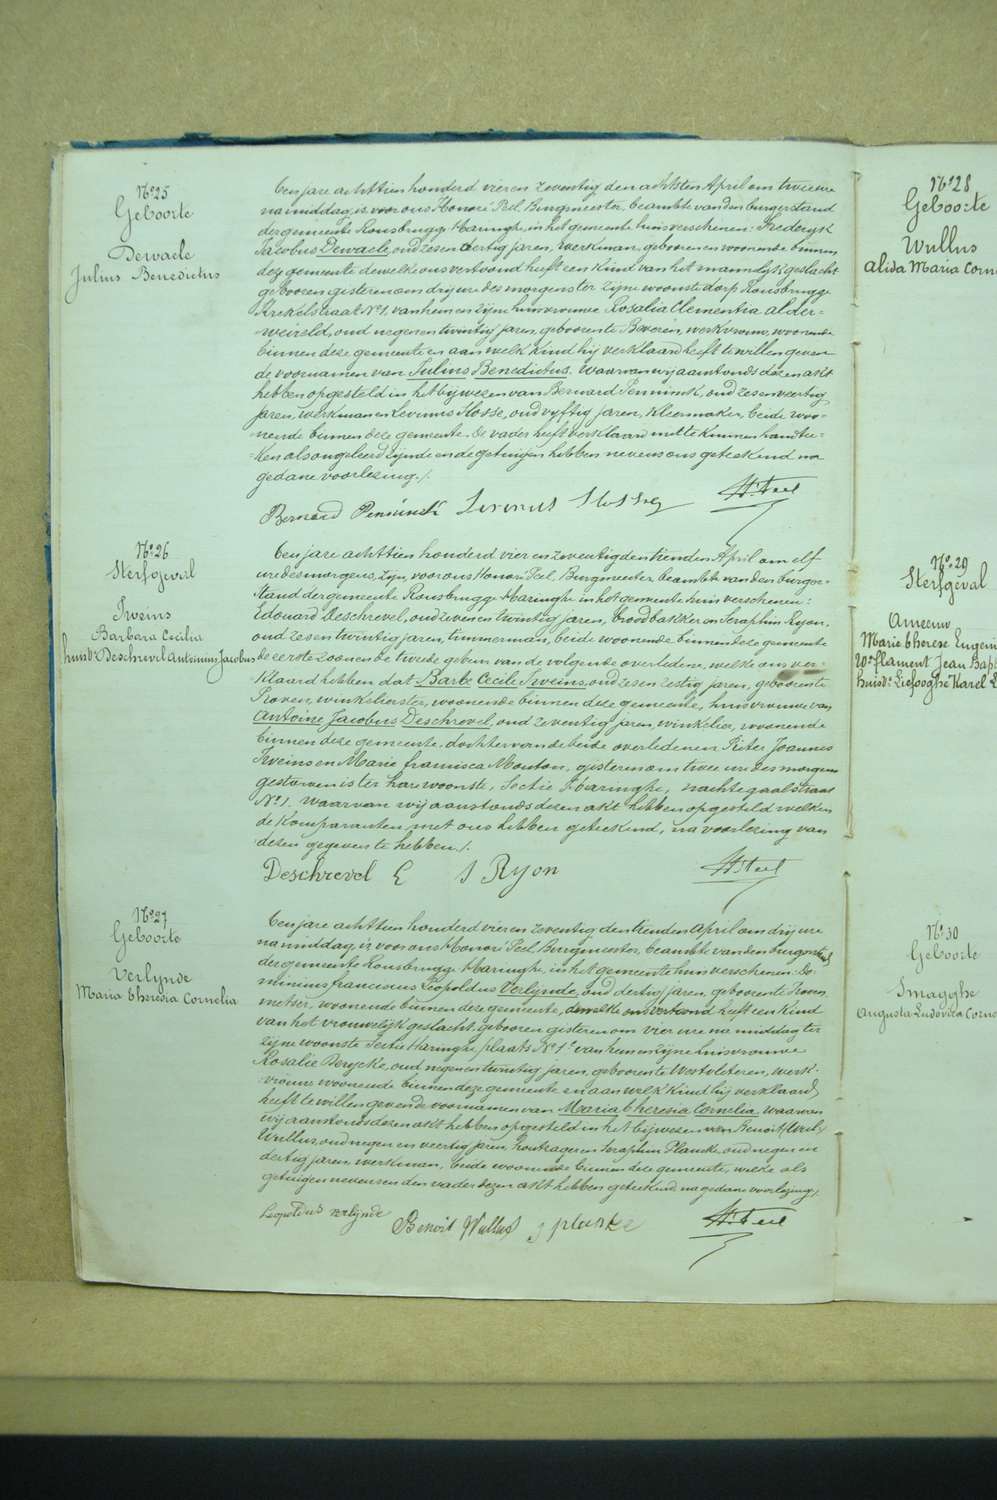 N° 25
Geboorte
Dewaele
Julius Benedictus
Ten jare achttien honderd vier en zeventig den achtsten April om twee ure
na middag, is voor ons Honoré Peel, Burgmeester, beambte van den burgerstand
der gemeente Rousbrugge Haringhe, in het gemeente huis verschenen: Frederyk
Jacobus Dewaele, oud zes en dertig jaren, werkman, geboren en woonende binnen
deze gemeente dewelke ons vertoond heeft een kind van het mannelyk geslacht
gebooren gisteren om drij ure des morgens ter zijne woonste dorp Rousbrugge
Krekelstraat N° 1, van hem en zijne huisvrouwe Rosalia Clementia Alder=
=weireld, oud negen en twintig jaren, geboren te Beveren, werkvrouw, woonende
binnen deze gemeente en aan welk kind hij verklaard heeft te willen geven
de voornamen van Julius Benedictus. Waarvan wij aanstonds dezen akt
hebben opgesteld in het bijwezen van Bernard Penninck, oud zes en veertig
jaren, werkman en Levinus Hosse, oud vyftig jaren, kleermaker, beide woo=
=nende binnen deze gemeente. De vader heeft verklaard niet te kunnen handtee=
=ken als ongeleerd zijnde en de getuigen hebben nevens ons geteekend na
gedane voorlezing./.
Bernard Penninck Levinus Hosse H. Peel
N° 26
Sterfgeval
Tweins
Barbara Cecilia
huisv. Deschrevel Antoinius Jacobus
Ten jare achttien honderd vier en zeventig den tienden April om elf
ure des morgens, zijn, voor ons Honoré Peel, Burgmeester, beambte van den burger=
=stand der gemeente Rousbrugge Haringhe in het gemeente huis verschenen:
Edouard Deschrevel, oud zeven en twintig jaren, broodbakker en Seraphin Ryon,
oud zes en twintig jaren, timmerman, beide woonende binnen deze gemeente
de eerste zoon en de tweede gebuur van de volgende overledene, welke ons ver=
klaard hebben dat Barbe Cecile Tweins, oud zes en zestig jaren, geboren te
Proven, winkelierster, woonende binnen deze gemeente, huisvrouwe van
Antoine Jacobus Deschrevel, oud zeventig jaren, winkelier, woonende
binnen deze gemeente, dochter van de beide overledenen Pieter Joannes
Tweins en Marie francisca Mouton, gisteren om twee ure des morgens
gestorven is ter hare woonste, Sectie Haringhe, nachtegaalstraat
N° 1. Waarvan wij aanstonds dezen akt hebben opgesteld welken
de komparanten met ons hebben geteekend, na voorlezing van
dezen gegeven te hebben./.
Deschrevel E S Ryon H. Peel
N° 27
Geboorte
Verlynde
Maria Theresia Cornelia
Ten jare achttien honderd vier en zeventig den tienden April om drij ure
na middag, is voor ons Honoré Peel, Burgmeester, beambte van den burgerstand
der gemeente Rousbrugge Haringhe, in het gemeente huis verschenen: Do=
minicus franciscus Leopoldus Verlynde, oud dertig jaren, geboren te Proven,
metser, woonende binnen deze gemeente, dewelke ons vertoond heeft een kind
van het vrouwelijk geslacht, gebooren gisteren om vier ure na middag ter
zijne woonste Sectie Haringhe, plaats N° 1, van hem en zijne huisvrouwe
Rosalie Derycke, oud negen en twintig jaren, geboren te Westvleteren, werk=
=vrouw woonende binnen deze gemeente en aan welk kind hij verklaard
heeft te willen geven de voornamen van Maria Theresia Cornelia. waarvan
wij aanstonds dezen akt hebben opgesteld in het bijwezen van Benoit
Wullus, oud negen en veertig jaren, houtzager en Seraphin Plancke, oud negen en
dertig jaren, werkman, beide woonende binnen deze gemeente, welke als
getuigen nevens en den vader dezen akt hebben geteekend na gedane voorlezing./.
Leopoldus verlynde Benoit Wullus S planke H. Peel
N° 28
Geboorte
Wullus
Alida Maria Corn
N° 29
Sterfgeval
Ameeuw
Marie Therese Eugen
We flament Jean Bap
huisv. Liefooghe Karel L
N° 30
Geboorte
Smagghe
Augusta Ludovica Corne